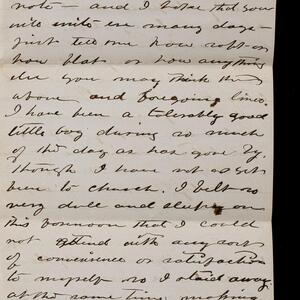 note — and I hope that you
will write me many days
just tell me how soft or
how flat or how anything
else you may think the
above and foregoing lines.
I have been a tolerably good
little boy during so much
of the day as has gone by,
though I have not as yet
been to church. I felt so
very dull and sleepy on
this forenoon that I could
not attend with any sort
of convenience or satisfaction
to myself so I staid away.
at the same time making